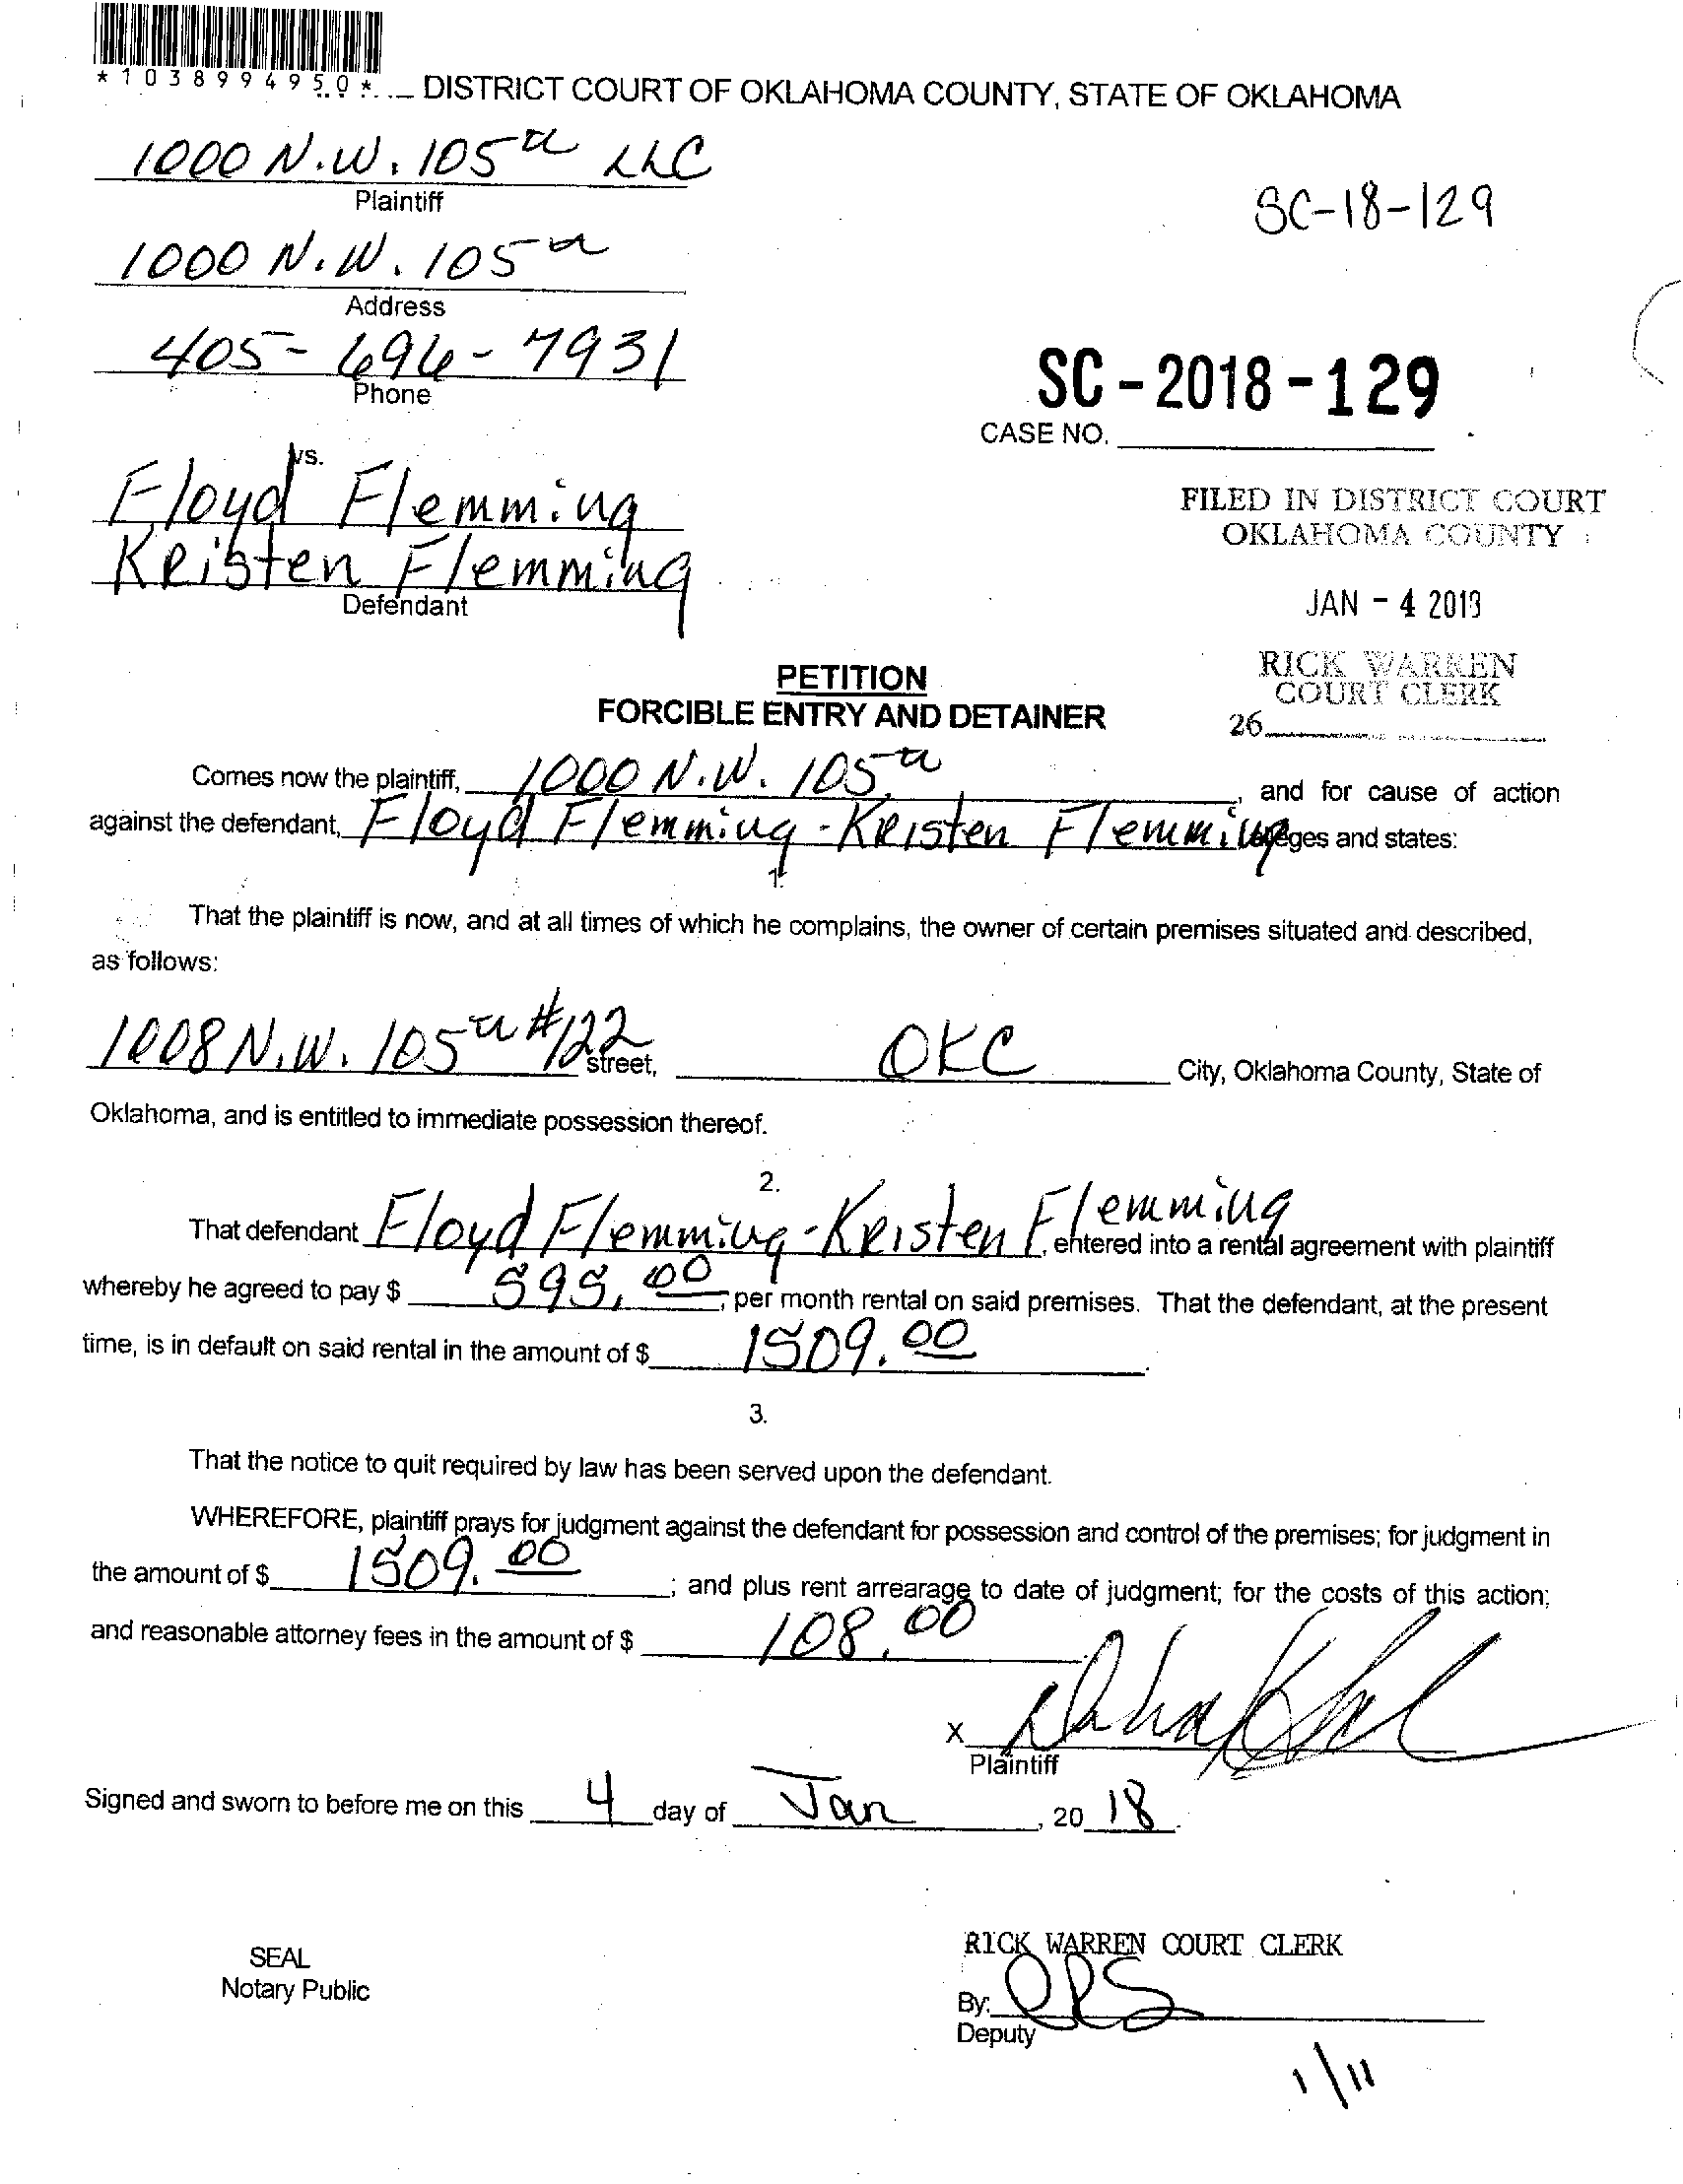 *1038994950*
DISTRICT COURT OF OKLAHOMA COUNTY, STATE OF OKLAHOMA
1000 N.W. 105th LLC
Plaintiff
SC-18-129
1000 N.W. 105th
Address
405-694-7931
Phone
SC-2018-129
CASE NO.
vs.
Floyd Flemming
Kristen Flemming
Defendant
FILED IN DISTRICT COURT
OKLAHOMA COUNTY
JAN - 4 2018
RICK WARREN
COURT CLERK
26
PETITION
FORCIBLE ENTRY AND DETAINER
Comes now the plaintiff, 1000 N.W. 105th, and for cause of action
against the defendant, Floyd Flemming - Kristen Flemming alleges and states:
1.
That the plaintiff is now, and at all times of which he complains, the owner of certain premises situated and described,
as follows:
1008 N.W. 105th #122 street, OKC City, Oklahoma County, State of
Oklahoma, and is entitled to immediate possession thereof.
2.
That defendant Floyd Flemming - Kristen Flemming, entered into a rental agreement with plaintiff
whereby he agreed to pay $ 595.00, per month rental on said premises. That the defendant, at the present
time, is in default on said rental in the amount of $ 1509.00.
3.
That the notice to quit required by law has been served upon the defendant.
WHEREFORE, plaintiff prays for judgment against the defendant for possession and control of the premises; for judgment in
the amount of $ 1509.00; and plus rent arrearage to date of judgment; for the costs of this action;
and reasonable attorney fees in the amount of $ 108.00.
X
Plaintiff
Signed and sworn to before me on this 4 day of Jan, 20 18.
SEAL
Notary Public
RICK WARREN COURT CLERK
By:
Deputy
1/11